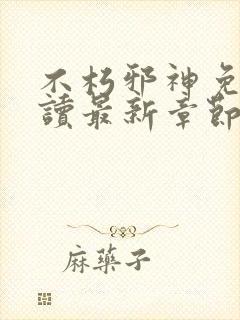 不朽邪神免
讀最新章節
麻藥子